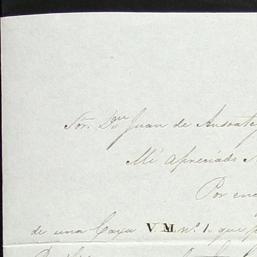 Sor. Dn Juan de Andrate
Mi Apreciado S
Por en
de una Caxa V.M. nº 1. que p